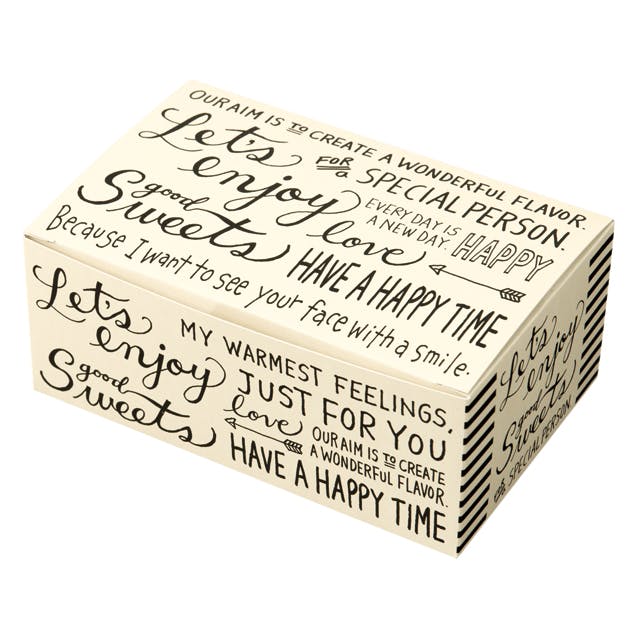 OUR AIM IS TO CREATE A WONDERFUL FLAVOR.
Let's enjoy
FOR a SPECIAL PERSON.
good Sweets
love
EVERY DAY IS
A NEW DAY.
HAPPY
HAVE A HAPPY TIME
Because I want to see your face with a smile.
Let's enjoy
MY WARMEST FEELINGS,
good Sweets
JUST FOR YOU
love
OUR AIM IS TO CREATE
A WONDERFUL FLAVOR.
HAVE A HAPPY TIME
Let's
enjoy
good
Sweets
FOR a SPECIAL PERSON.